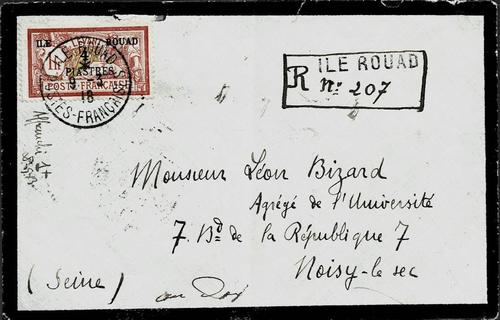 ILE ROUAD
4
PIASTRES
POSTE FRANÇAISE
ILE ROUAD
POSTES-FRANÇAISES
18
R ILE ROUAD
Nº 207
Monsieur Léon Bizard
Agrégé de l'Université
7. Bd de la République 7
Noisy-le sec
(Seine)